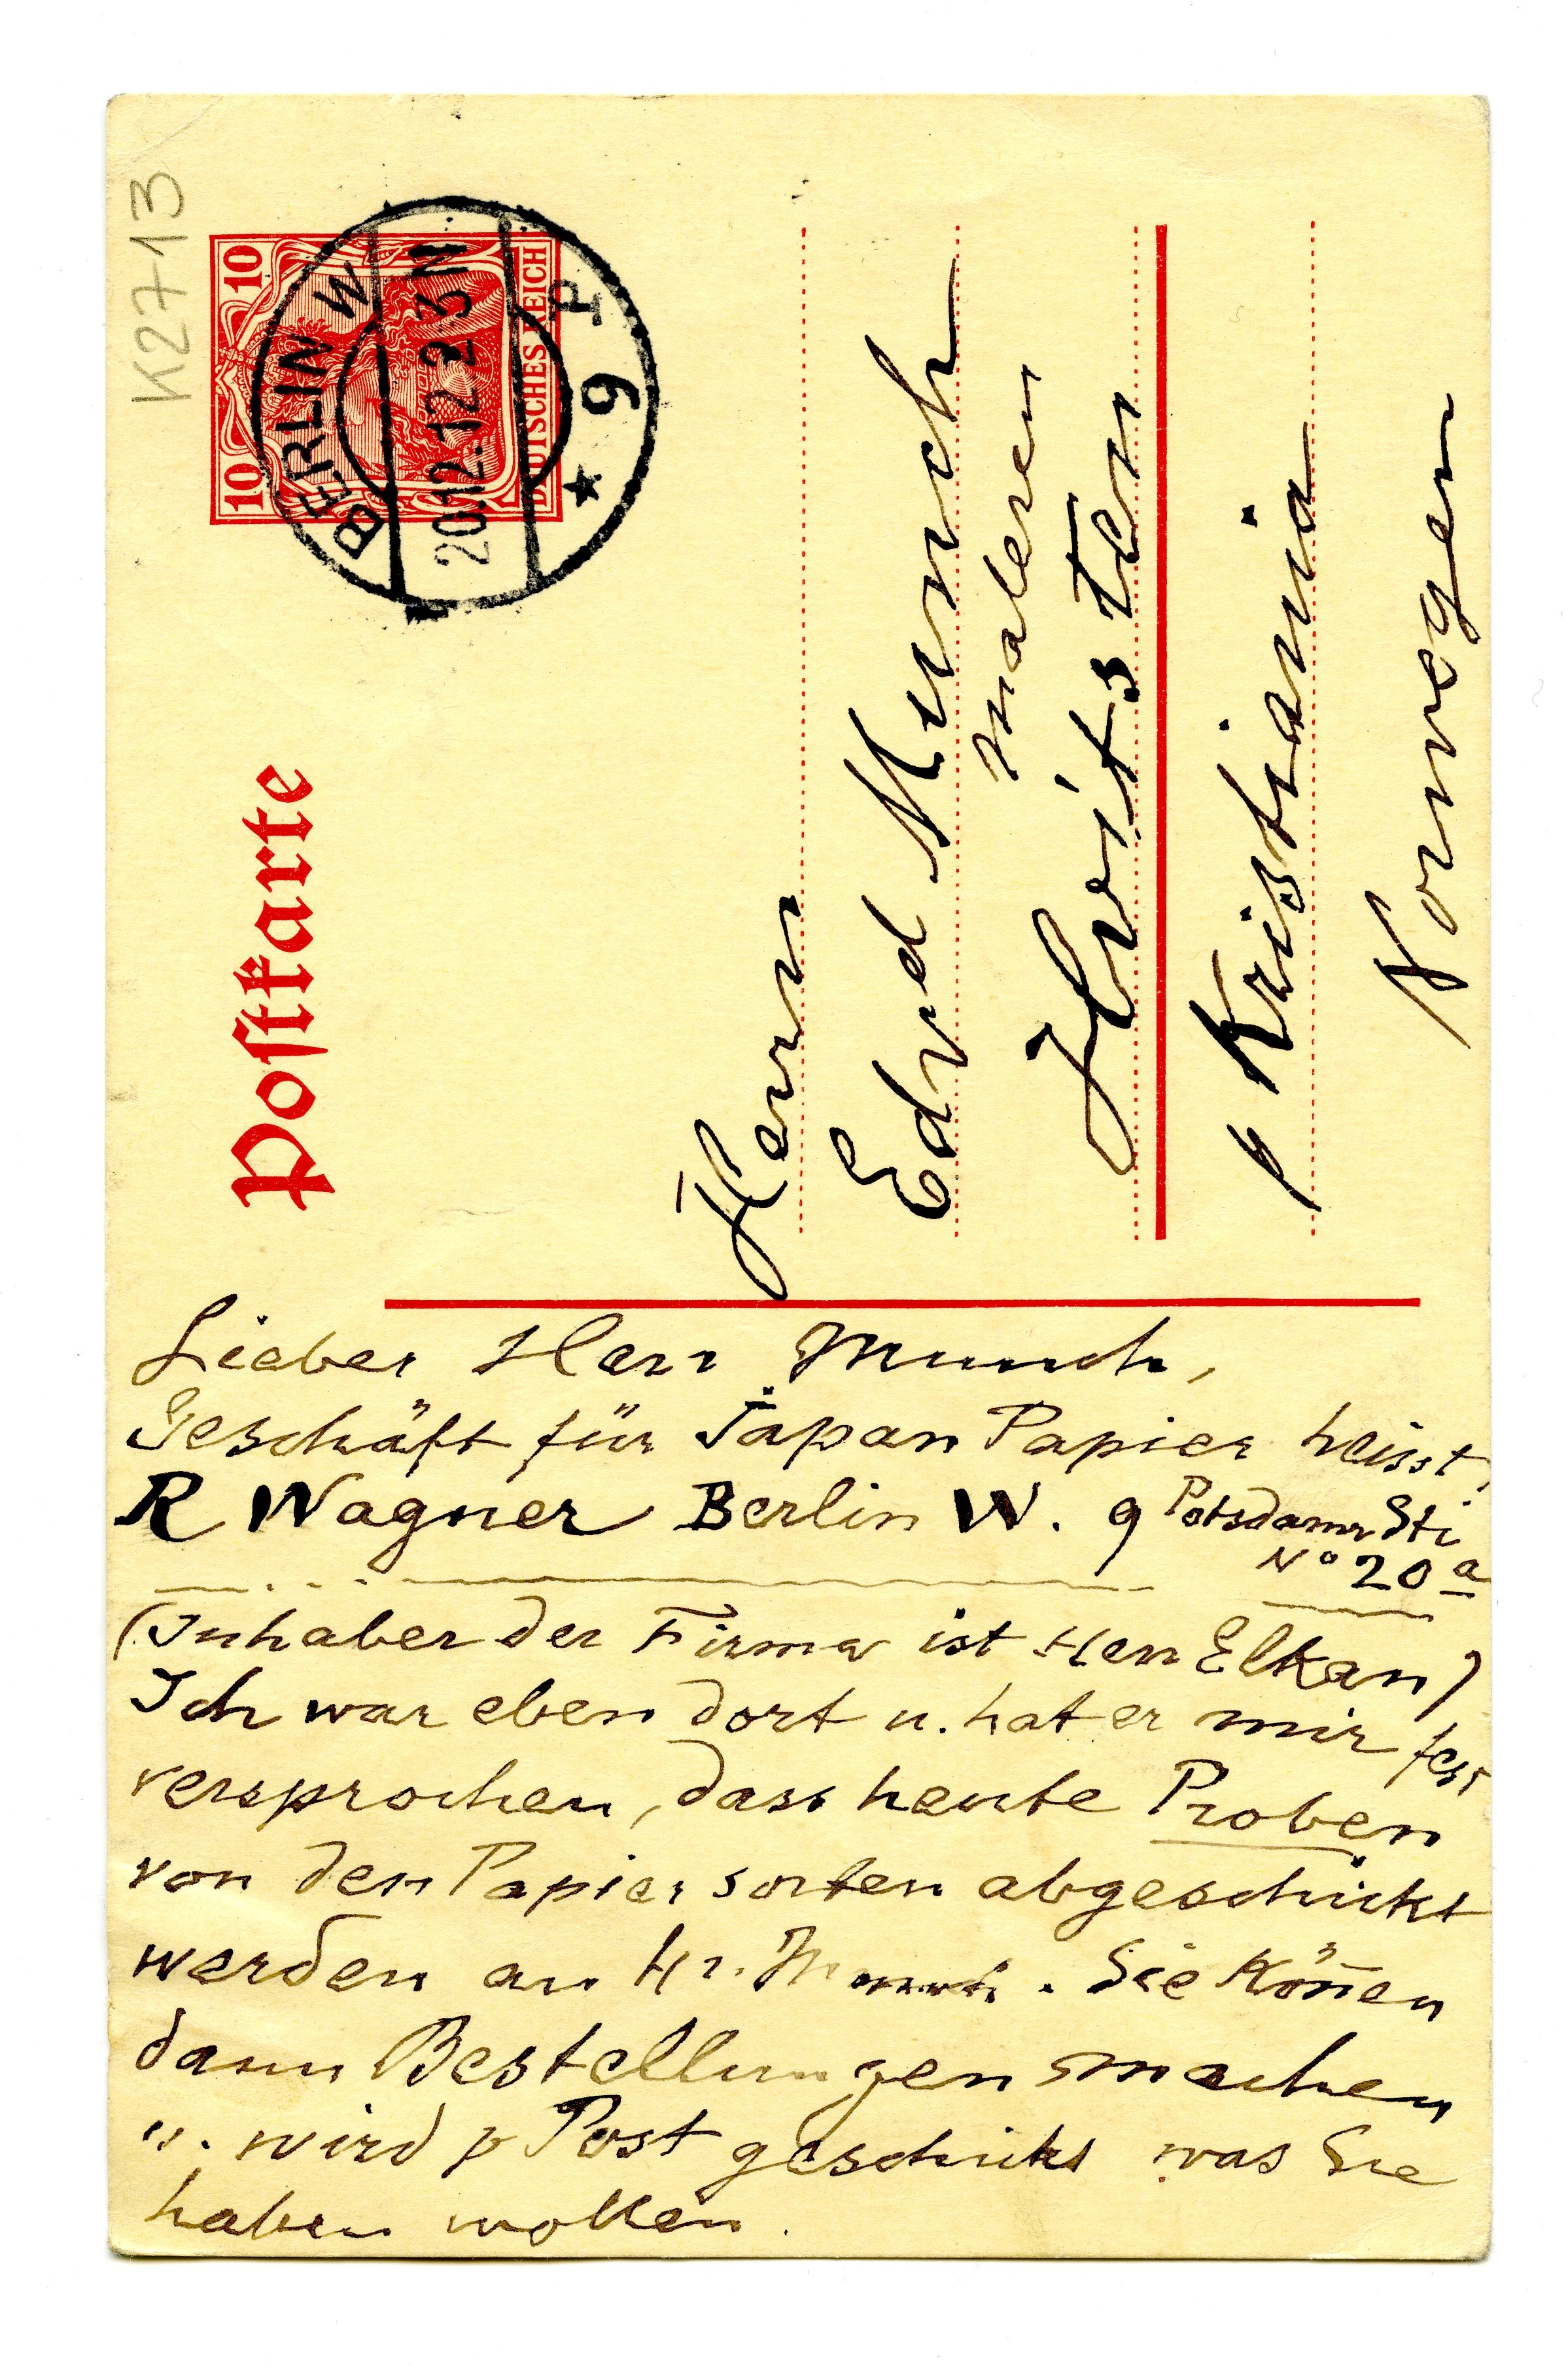 K2713
10 10
DEUTSCHES REICH
BERLIN W
20.12.12.2-3N
* 9 F
Postkarte
Herrn
Edvd Munch
maleren
Hvitsten
p Kristiania
Norwegen
Lieber Herr Munch,
Geschäft für Japan Papier heisst,
R Wagner Berlin W. 9 Potsdamer Str
No 20a
(Inhaber der Firma ist Herr Elkan)
Ich war eben dort u. hat er mir fest
versprochen, dass heute Proben
von den Papiersorten abgeschickt
werden an Hr. Munch. Sie Kön̄en
dann Bestellungen machen
u. wird p Post geschickt was Sie
haben wollen.